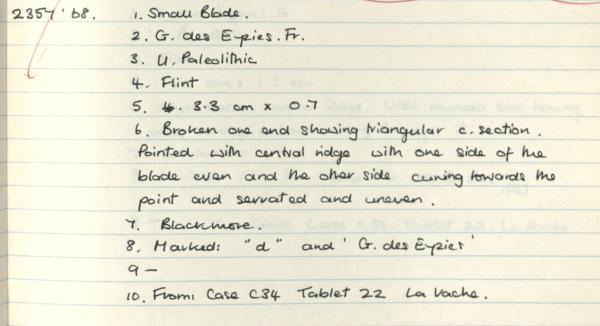 2357 'b8. 1. Small Blade.
2. G. des Eyzies. Fr.
3. U. Paleolithic
4. Flint
5. 4. 3.3 cm x 0.7
6. Broken one end showing triangular c. section.
Pointed with central ridge with one side of the
blade even and the other side curving towards the
point and serrated and uneven.
7. Blackmore.
8. Marked: "d" and 'G. des Eyzies'
9 —
10. From: Case C34 Tablet 22 La Vache.